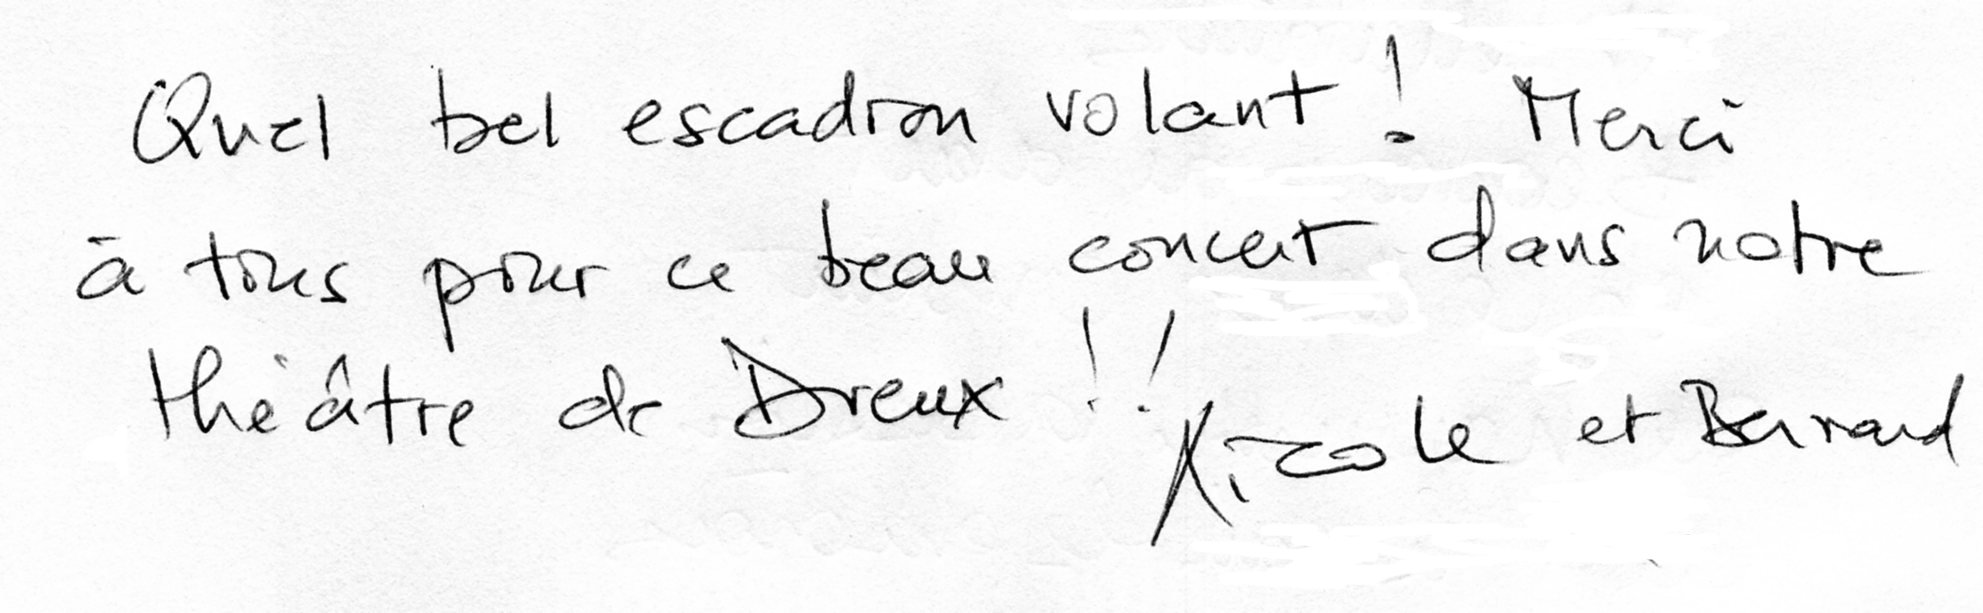 Quel bel escadron volant ! Merci
à tous pour ce beau concert dans notre
théâtre de Dreux !!
Nicole et Bernard